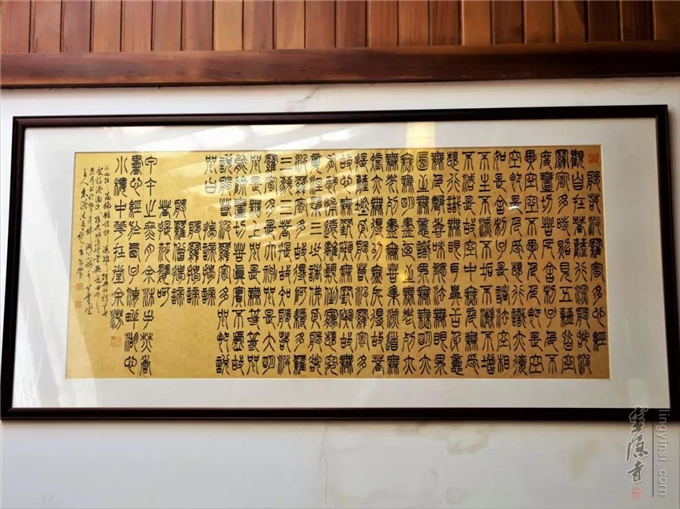 般若波羅密多心經
觀自在菩薩行深般若波
羅密多時照見五蘊皆空
度一切苦厄舍利子色不
異空空不異色色即是空
空即是色受想行識亦復
如是舍利子是諸法空相
不生不滅不垢不淨不增
不減是故空中無色無受
想行識無眼耳鼻舌身意
無色聲香味觸法無眼界
乃至無意識界無無明亦
無無明盡乃至無老死亦
無老死盡無苦集滅道無
智亦無得以無所得故菩
提薩埵依般若波羅密多
故心無罣礙無罣礙故無
有恐怖遠離顛倒夢想究
竟涅槃三世諸佛依般若
波羅密多故得阿耨多羅
三藐三菩提故知般若波
羅密多是大神咒是大明
咒是無上咒是無等等咒
能除一切苦真實不虛故
說般若波羅密多咒即說
咒曰
揭諦揭諦
般羅揭諦
般羅僧揭諦
菩提薩婆訶
靈隱寺
lingyinsi.com